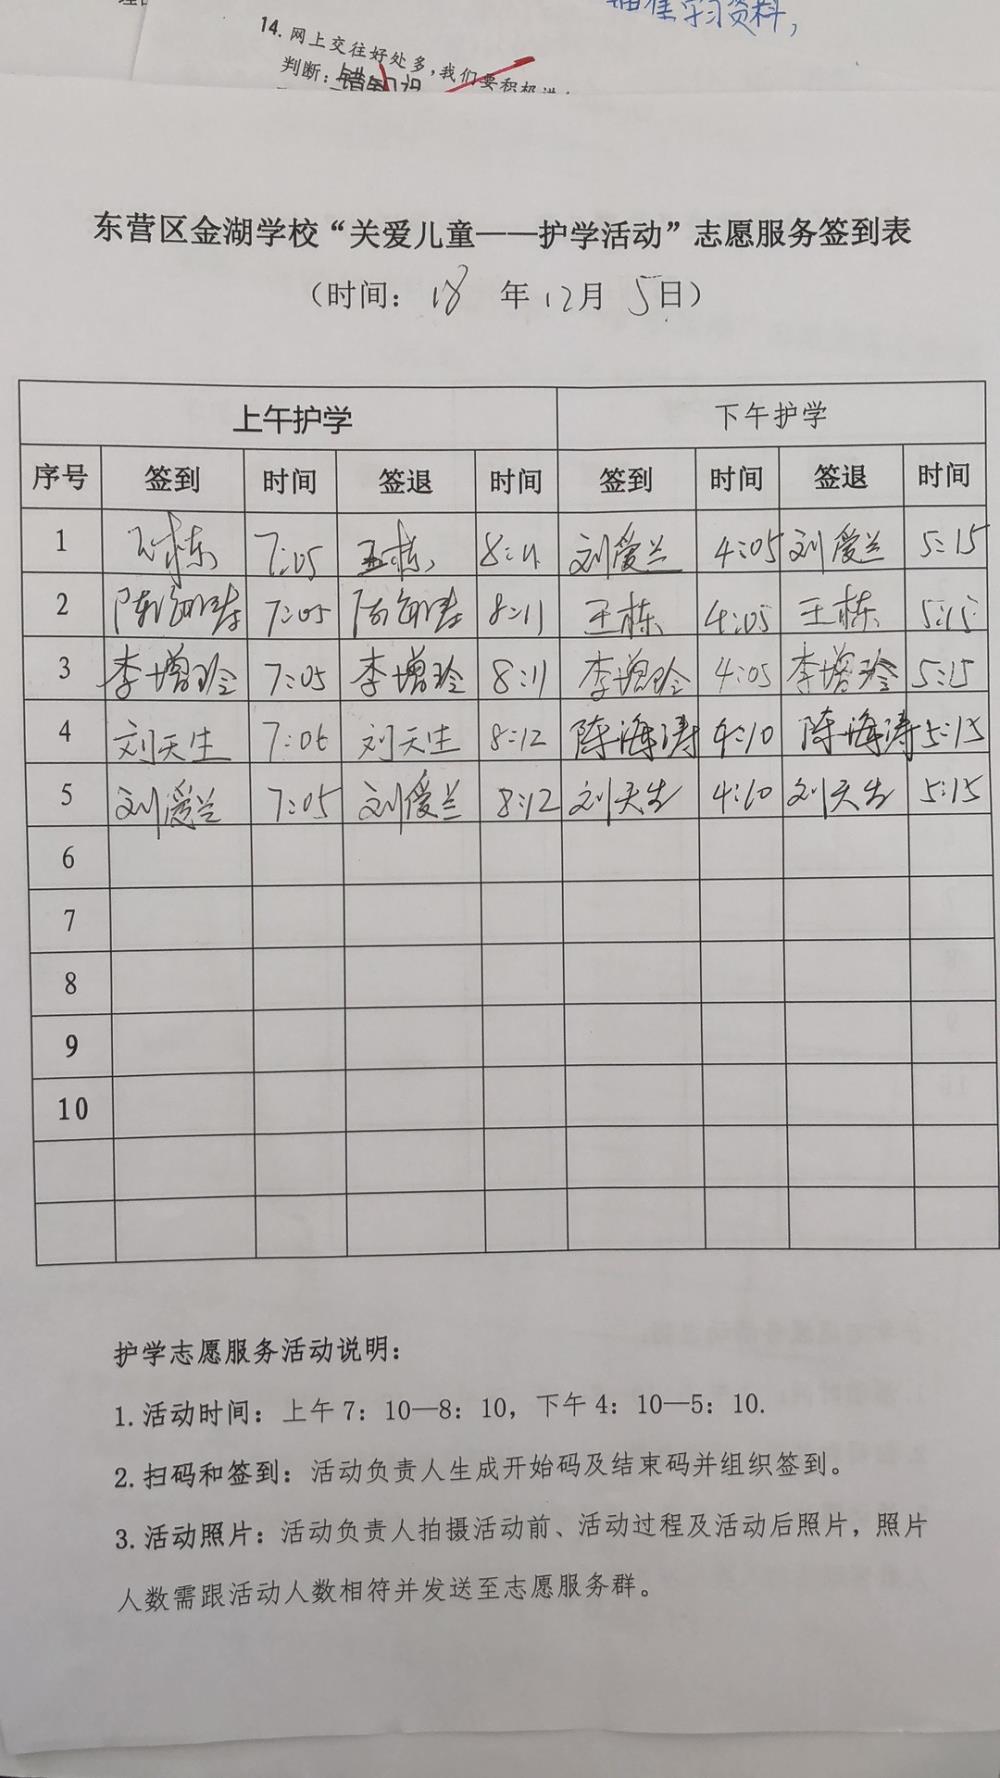 14. 网上交往好处多，我们要积极
判断：错
学习资料，
东营区金湖学校“关爱儿童——护学活动”志愿服务签到表
（时间：18 年 12月 5日）
上午护学 下午护学
序号 签到 时间 签退 时间 签到 时间 签退 时间
1 王栋 7:05 王栋 8:11 刘爱兰 4:05 刘爱兰 5:15
2 陈海涛 7:05 陈海涛 8:11 王栋 4:05 王栋 5:15
3 李增玲 7:05 李增玲 8:11 李增玲 4:05 李增玲 5:15
4 刘天生 7:06 刘天生 8:12 陈海涛 4:10 陈海涛 5:15
5 刘爱兰 7:05 刘爱兰 8:12 刘天生 4:10 刘天生 5:15
6
7
8
9
10
护学志愿服务活动说明：
1.活动时间：上午 7：10—8：10，下午 4：10—5：10.
2.扫码和签到：活动负责人生成开始码及结束码并组织签到。
3.活动照片：活动负责人拍摄活动前、活动过程及活动后照片，照片
人数需跟活动人数相符并发送至志愿服务群。